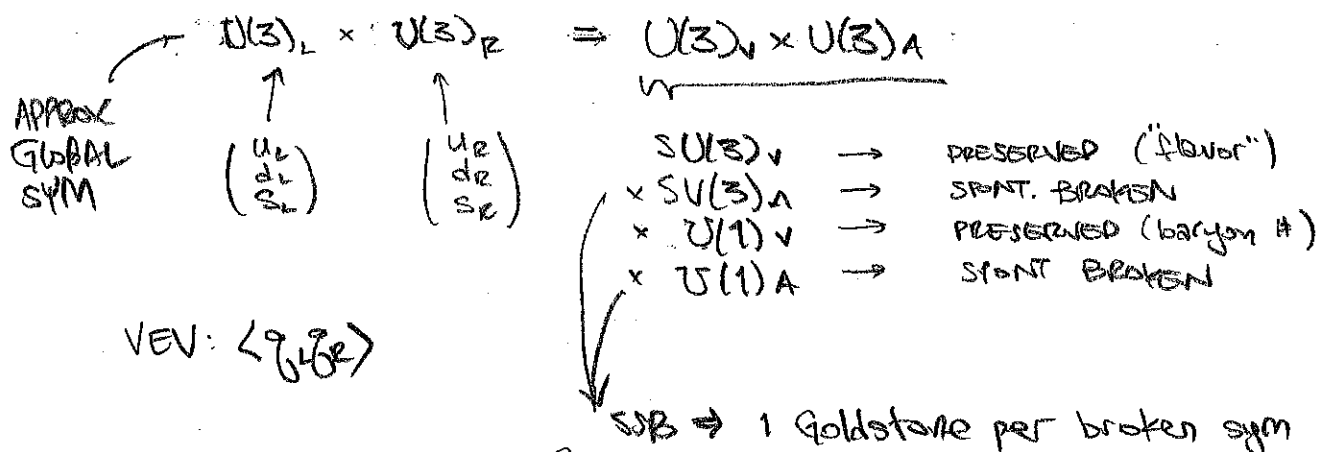 U(3)L × U(3)R ⇒ U(3)V × U(3)A
APPROX
GLOBAL
SYM
(uL dL sL)
(uR dR sR)
SU(3)V → PRESERVED ("flavor")
× SU(3)A → SPONT. BROKEN
× U(1)V → PRESERVED (baryon #)
× U(1)A → SPONT BROKEN
VEV: <qLqR>
SSB ⇒ 1 Goldstone per broken sym